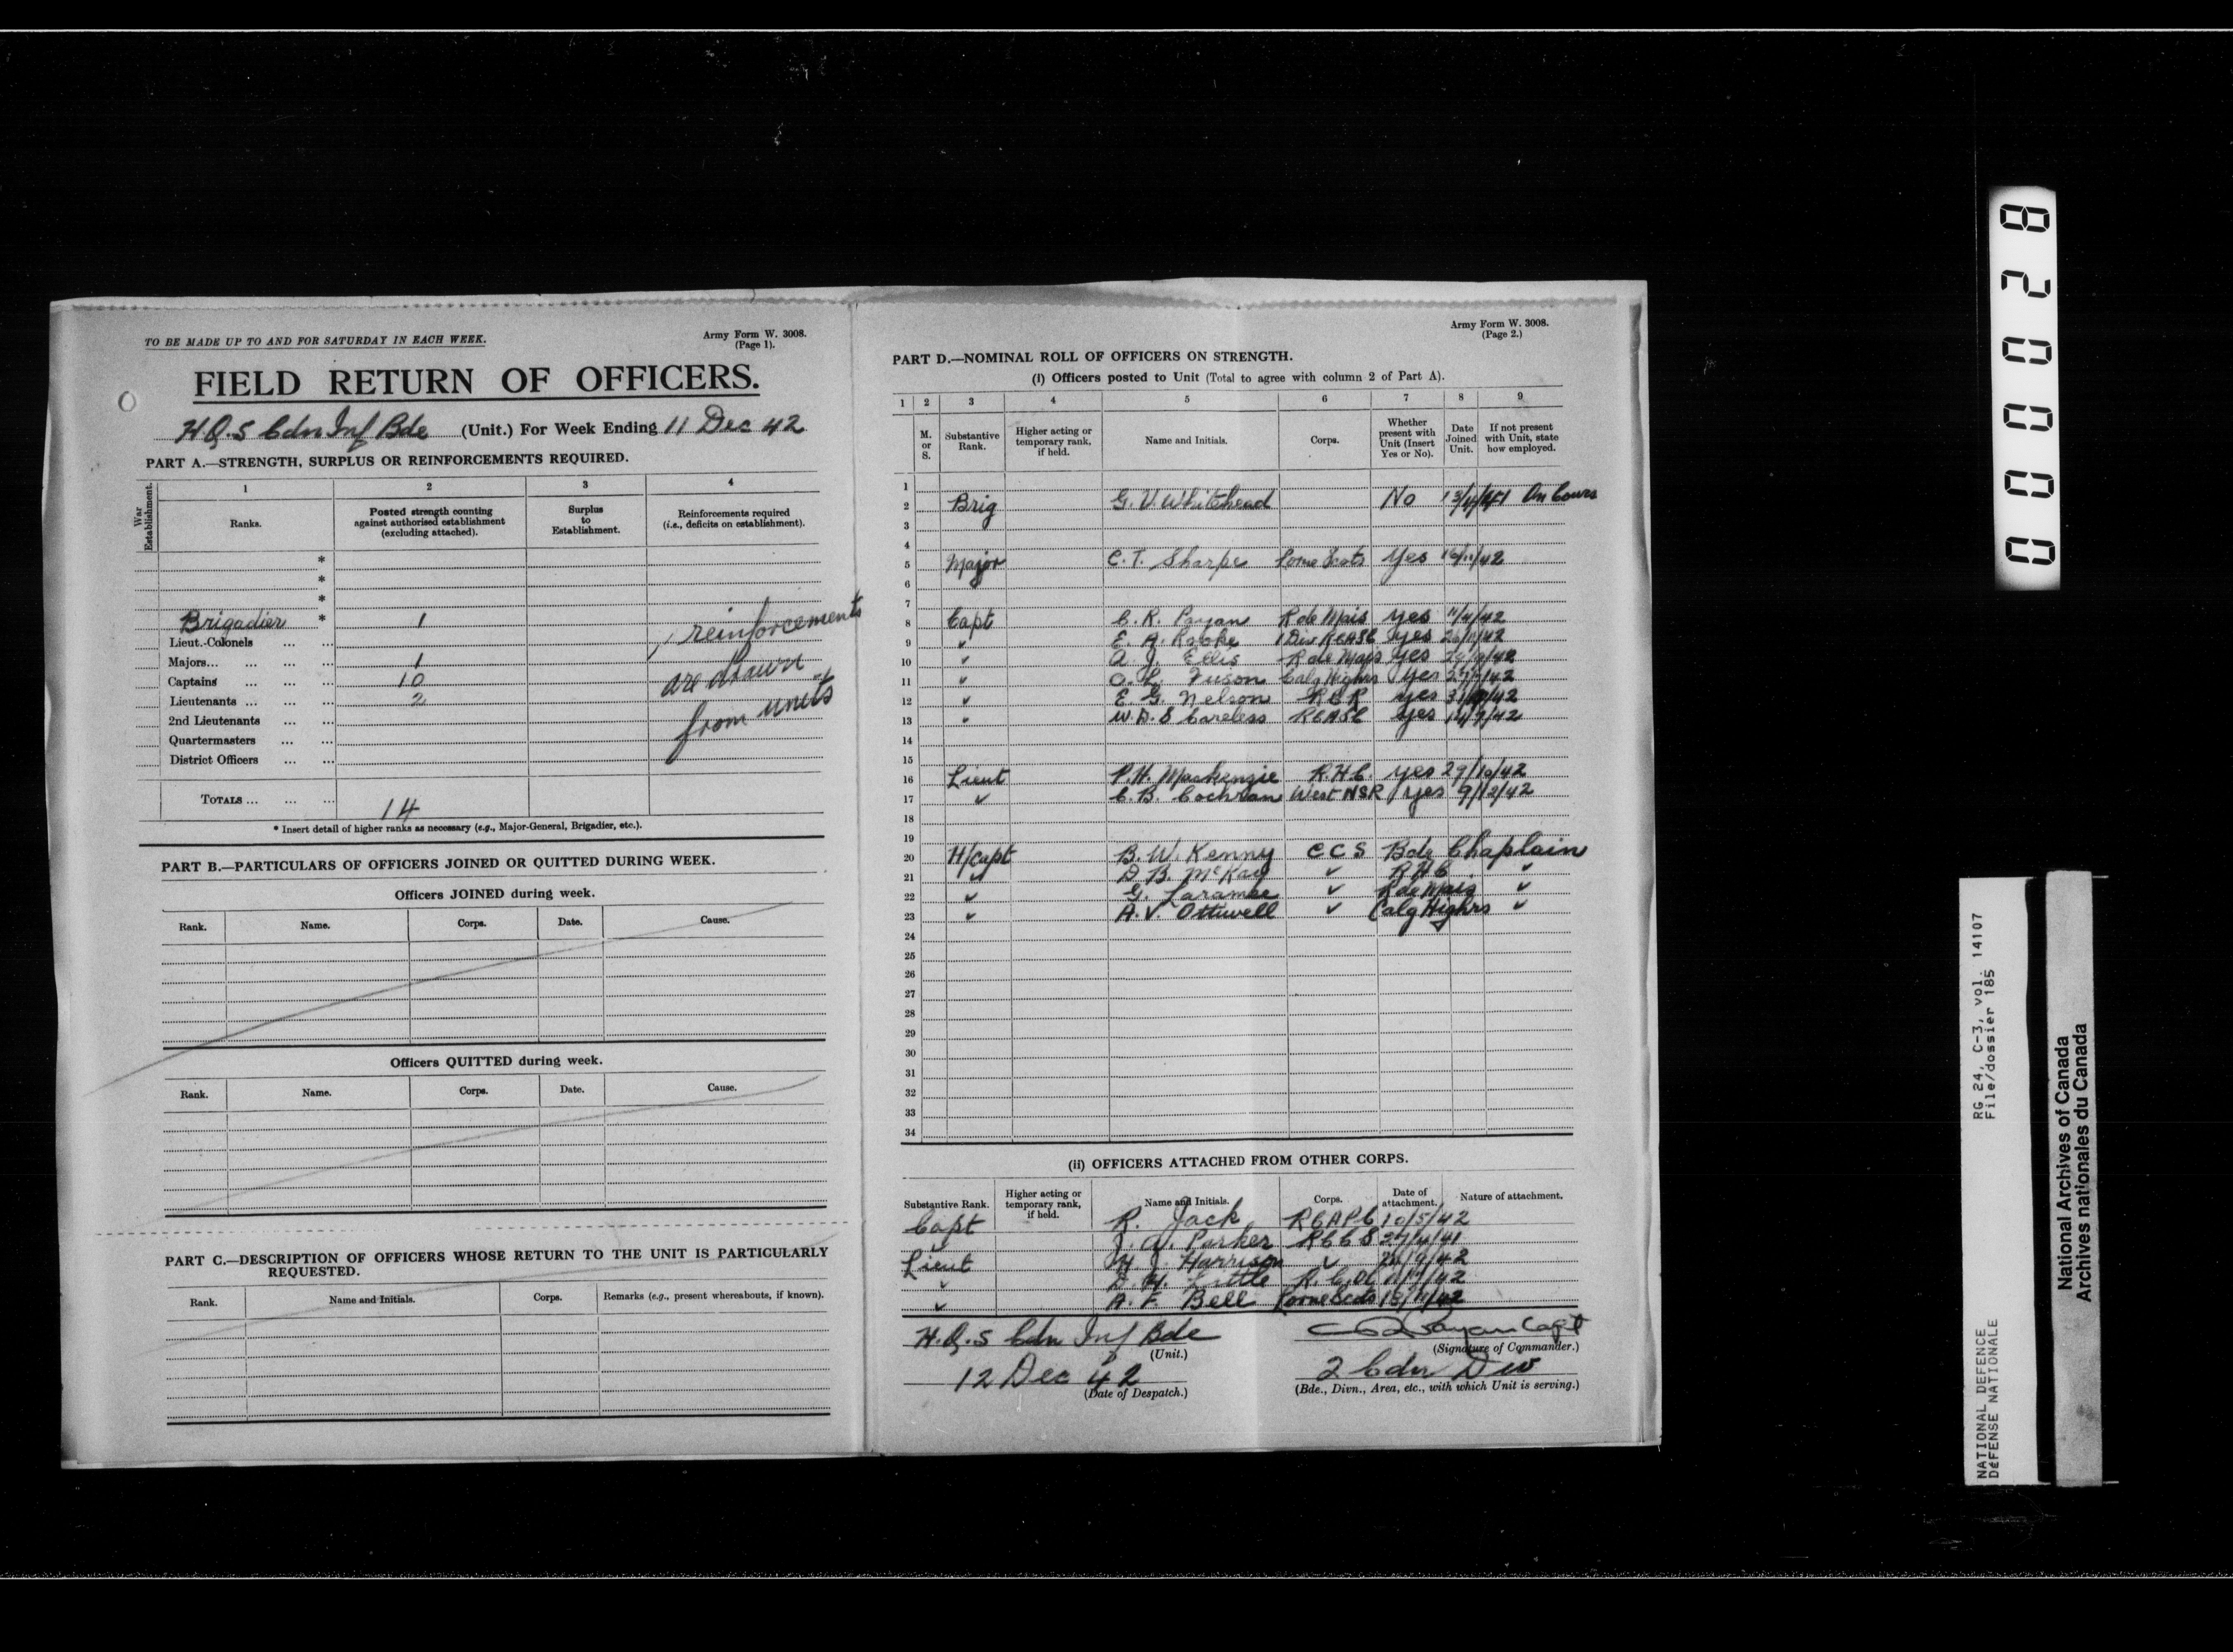 TO BE MADE UP TO AND FOR SATURDAY IN EACH WEEK.
Army Form W. 3008.
(Page 1).
FIELD RETURN OF OFFICERS.
H.Q. 5 Cdn Inf Bde (Unit.) For Week Ending 11 Dec 42
PART A.—STRENGTH, SURPLUS OR REINFORCEMENTS REQUIRED.
War Establishment.
1 2 3 4
Ranks. Posted strength counting against authorised establishment (excluding attached). Surplus to Establishment. Reinforcements required (i.e., deficits on establishment).
*
*
*
Brigadier * 1
reinforcements
Lieut.-Colonels ... ...
Majors... ... ... ... 1
are drawn
Captains ... ... ... 10
Lieutenants ... ... ... 2
from units
2nd Lieutenants ... ...
Quartermasters ... ...
District Officers ... ...
TOTALS ... ... ... 14
* Insert detail of higher ranks as necessary (e.g., Major-General, Brigadier, etc.).
PART B.—PARTICULARS OF OFFICERS JOINED OR QUITTED DURING WEEK.
Officers JOINED during week.
Rank. Name. Corps. Date. Cause.
Officers QUITTED during week.
Rank. Name. Corps. Date. Cause.
PART C.—DESCRIPTION OF OFFICERS WHOSE RETURN TO THE UNIT IS PARTICULARLY
REQUESTED.
Rank. Name and Initials. Corps. Remarks (e.g., present whereabouts, if known).
Army Form W. 3008.
(Page 2.)
PART D.—NOMINAL ROLL OF OFFICERS ON STRENGTH.
(i) Officers posted to Unit (Total to agree with column 2 of Part A).
1 2 3 4 5 6 7 8 9
M. or S. Substantive Rank. Higher acting or temporary rank, if held. Name and Initials. Corps. Whether present with Unit (Insert Yes or No). Date Joined Unit. If not present with Unit, state how employed.
1
2 Brig G. V. Whitehead No On Cours
3
4
5 Major C. T. Sharpe Lorne Scots Yes 16/11/42
6
7
8 Capt C. R. Payan R de Mais yes 11/4/42
9 " E. A. Rooke 1 Div RCASC yes 26/11/42
10 " A. J. Ellis R de Mais yes
11 " Calg Highrs yes
12 " E. G. Nelson RCR yes
13 " W. D. S. Careless RCASC yes 14/9/42
14
15
16 Lieut P. H. Mackenzie R.H.C. yes 29/10/42
17 " C. B. Cochran West NSR yes 9/12/42
18
19
20 H/Capt B. W. Kenny CCS Bde Chaplain
21 " D. B. McKay " RHC "
22 " G. Laramee " R de Mais "
23 " A. V. Ottiwell " Calg Highrs "
24
25
26
27
28
29
30
31
32
33
34
(ii) OFFICERS ATTACHED FROM OTHER CORPS.
Substantive Rank. Higher acting or temporary rank, if held. Name and Initials. Corps. Date of attachment. Nature of attachment.
Capt R. Jack RCAPC 10/5/42
" J. A. Parker RCCS
Lieut H. J. Harrison "
" D. H. Little
" A. F. Bell Lorne Scots
H.Q. 5 Cdn Inf Bde
(Unit.)
CR Payan Capt
(Signature of Commander.)
12 Dec 42
(Date of Despatch.)
2 Cdn Div
(Bde., Divn., Area, etc., with which Unit is serving.)
000028
RG 24, C-3, vol. 14107
File/dossier 185
NATIONAL DEFENCE
DÉFENSE NATIONALE
National Archives of Canada
Archives nationales du Canada